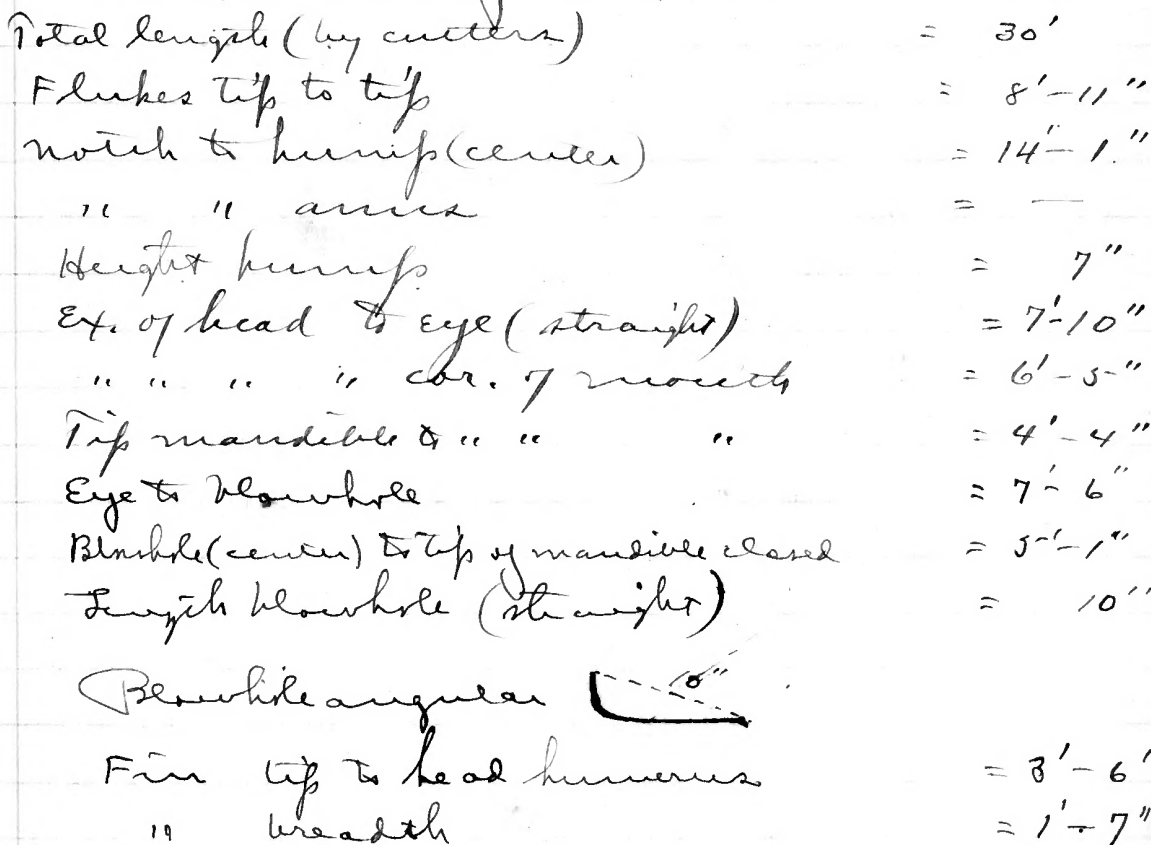 Total length (by cutters) = 30'
Flukes tip to tip = 8'-11"
notch to hump (center) = 14'-1."
" " anus = —
Height hump = 7"
Ex. of head to eye (straight) = 7'-10"
" " " " cor. of mouth = 6'-5"
Tip mandible to " " " = 4'-4"
Eye to blowhole = 7'-6"
Blowhole (center) to tip of mandible closed = 5'-1"
Length blowhole (straight) = 10"
Blowhole angular 10"
Fin tip to head humerus = 3'-6'
" breadth = 1'-7"